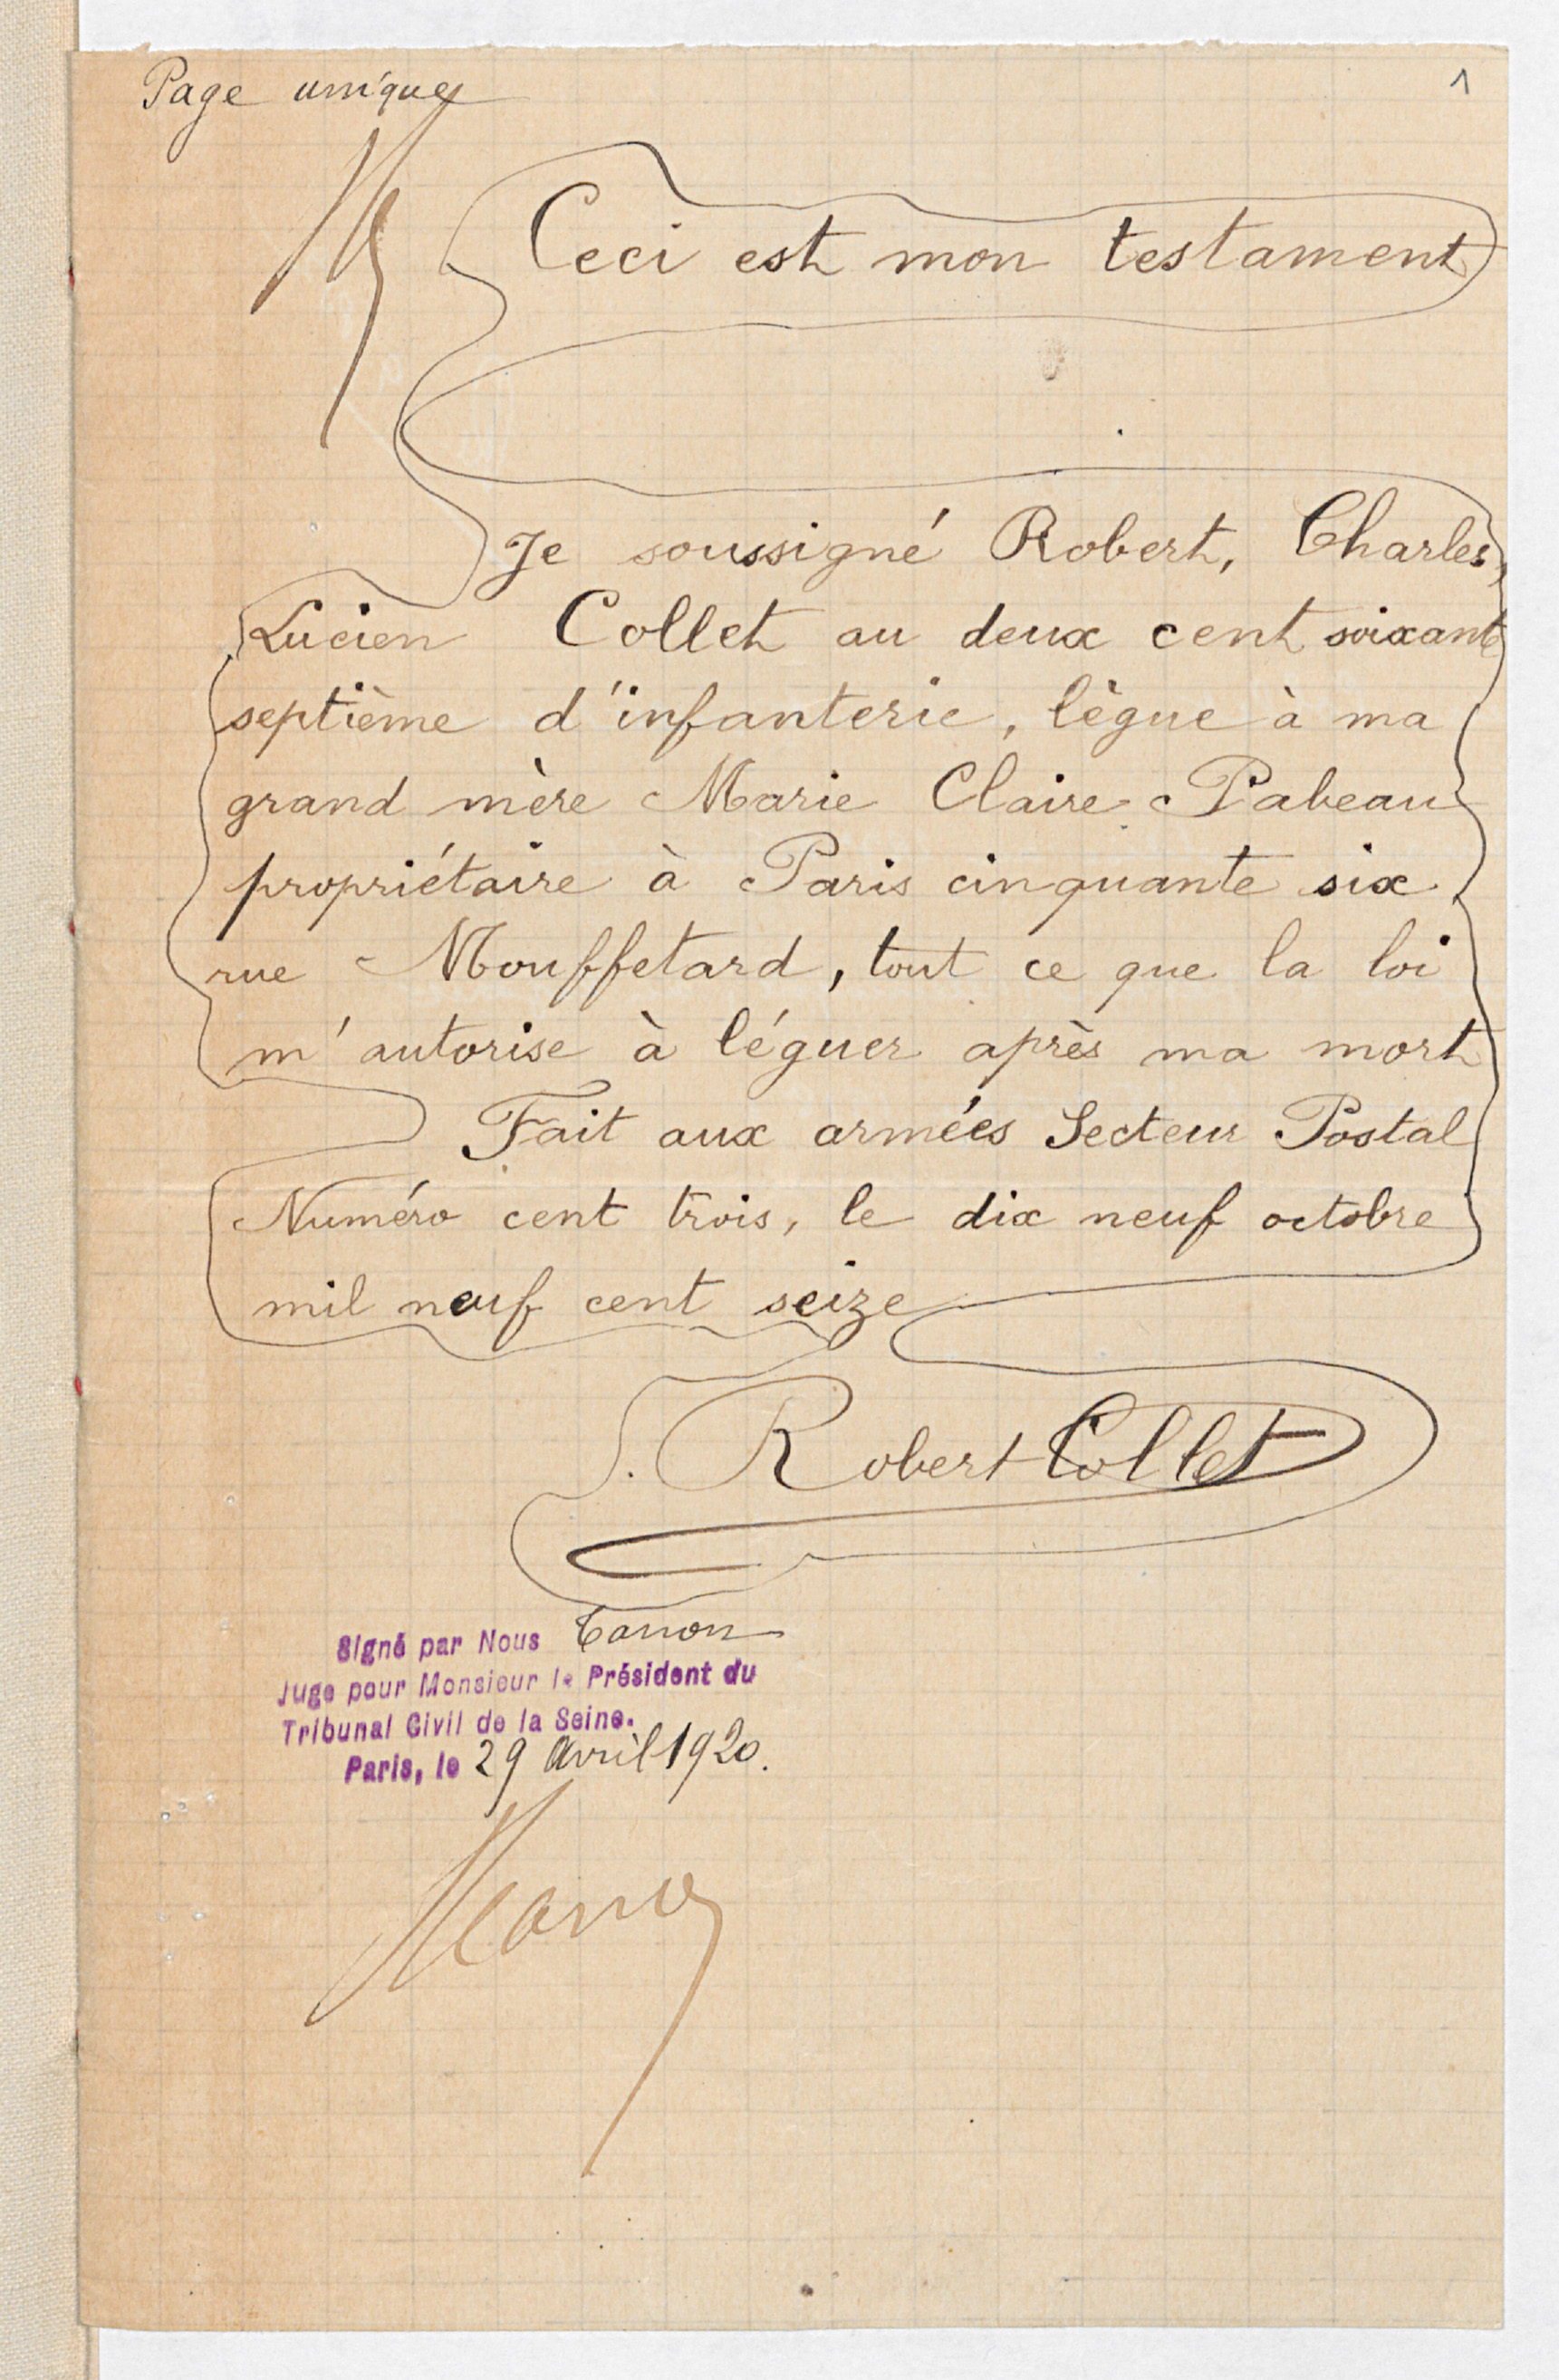 Page unique
1
Ceci est mon testament
Je soussigné Robert, Charles,
Lucien Collet au deux cent soixante
septième d'infanterie, lègue à ma
grand mère Marie Claire Pabeau
propriétaire à Paris cinquante six
rue Mouffetard, tout ce que la loi
m'autorise à léguer après ma mort
Fait aux armées Secteur Postal
Numéro cent trois, le dix neuf octobre
mil neuf cent seize
Robert Collet
Signé par Nous
Juge pour Monsieur le Président du
Tribunal Civil de la Seine.
Paris, le 29 Avril 1920.